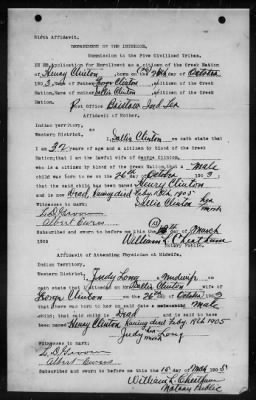 Birth Affidavit.
DEPARTMENT OF THE INTERIOR,
Commission to the Five Civilized Tribes.
IN RE Application for Enrollment as a citizen of the Creek
Nation of Henry Clinton, born on the 26th October
1903, Name of father George Clinton a citizen of the Creek
Nation, Name of mother Sallie Clinton a citizen of the Creek
Nation.
Post Office Bristow Ind Ter
Affidavit of Mother.
Indian Territory,
Western District,
I, Sallie Clinton on oath state that
I am 32 years of age and a citizen by blood of the Creek
Nation; that I am the lawful wife of George Clinton,
who is a citizen by blood of the Creek Nation that a male
child was born to me on the 26th October 1903
that the said child has been named Henry Clinton
and is now Dead, having died Feby. 18th 1905
Witnesses to mark: Sallie Clinton her mark
Albert
Subscribed and sworn to before me this 15th day of March
1905
William L Cheatham
Notary Public.
Affidavit of Attending Physician or Midwife.
Indian Territory,
Western District,
I, Judy Long a Midwife on oath
state that I attended on Mrs Sallie Clinton wife of
George Clinton on the 26th of October 1903
that there was born to her on said date a male
child; that said child is Dead and is said to have
been named Henry Clinton having died Feby 18th 1905
Judy Long her mark
Witnesses to mark:
Albert
Subscribed and sworn to before me this 15 of Mch 1905
William L. Cheatham
Notary Public